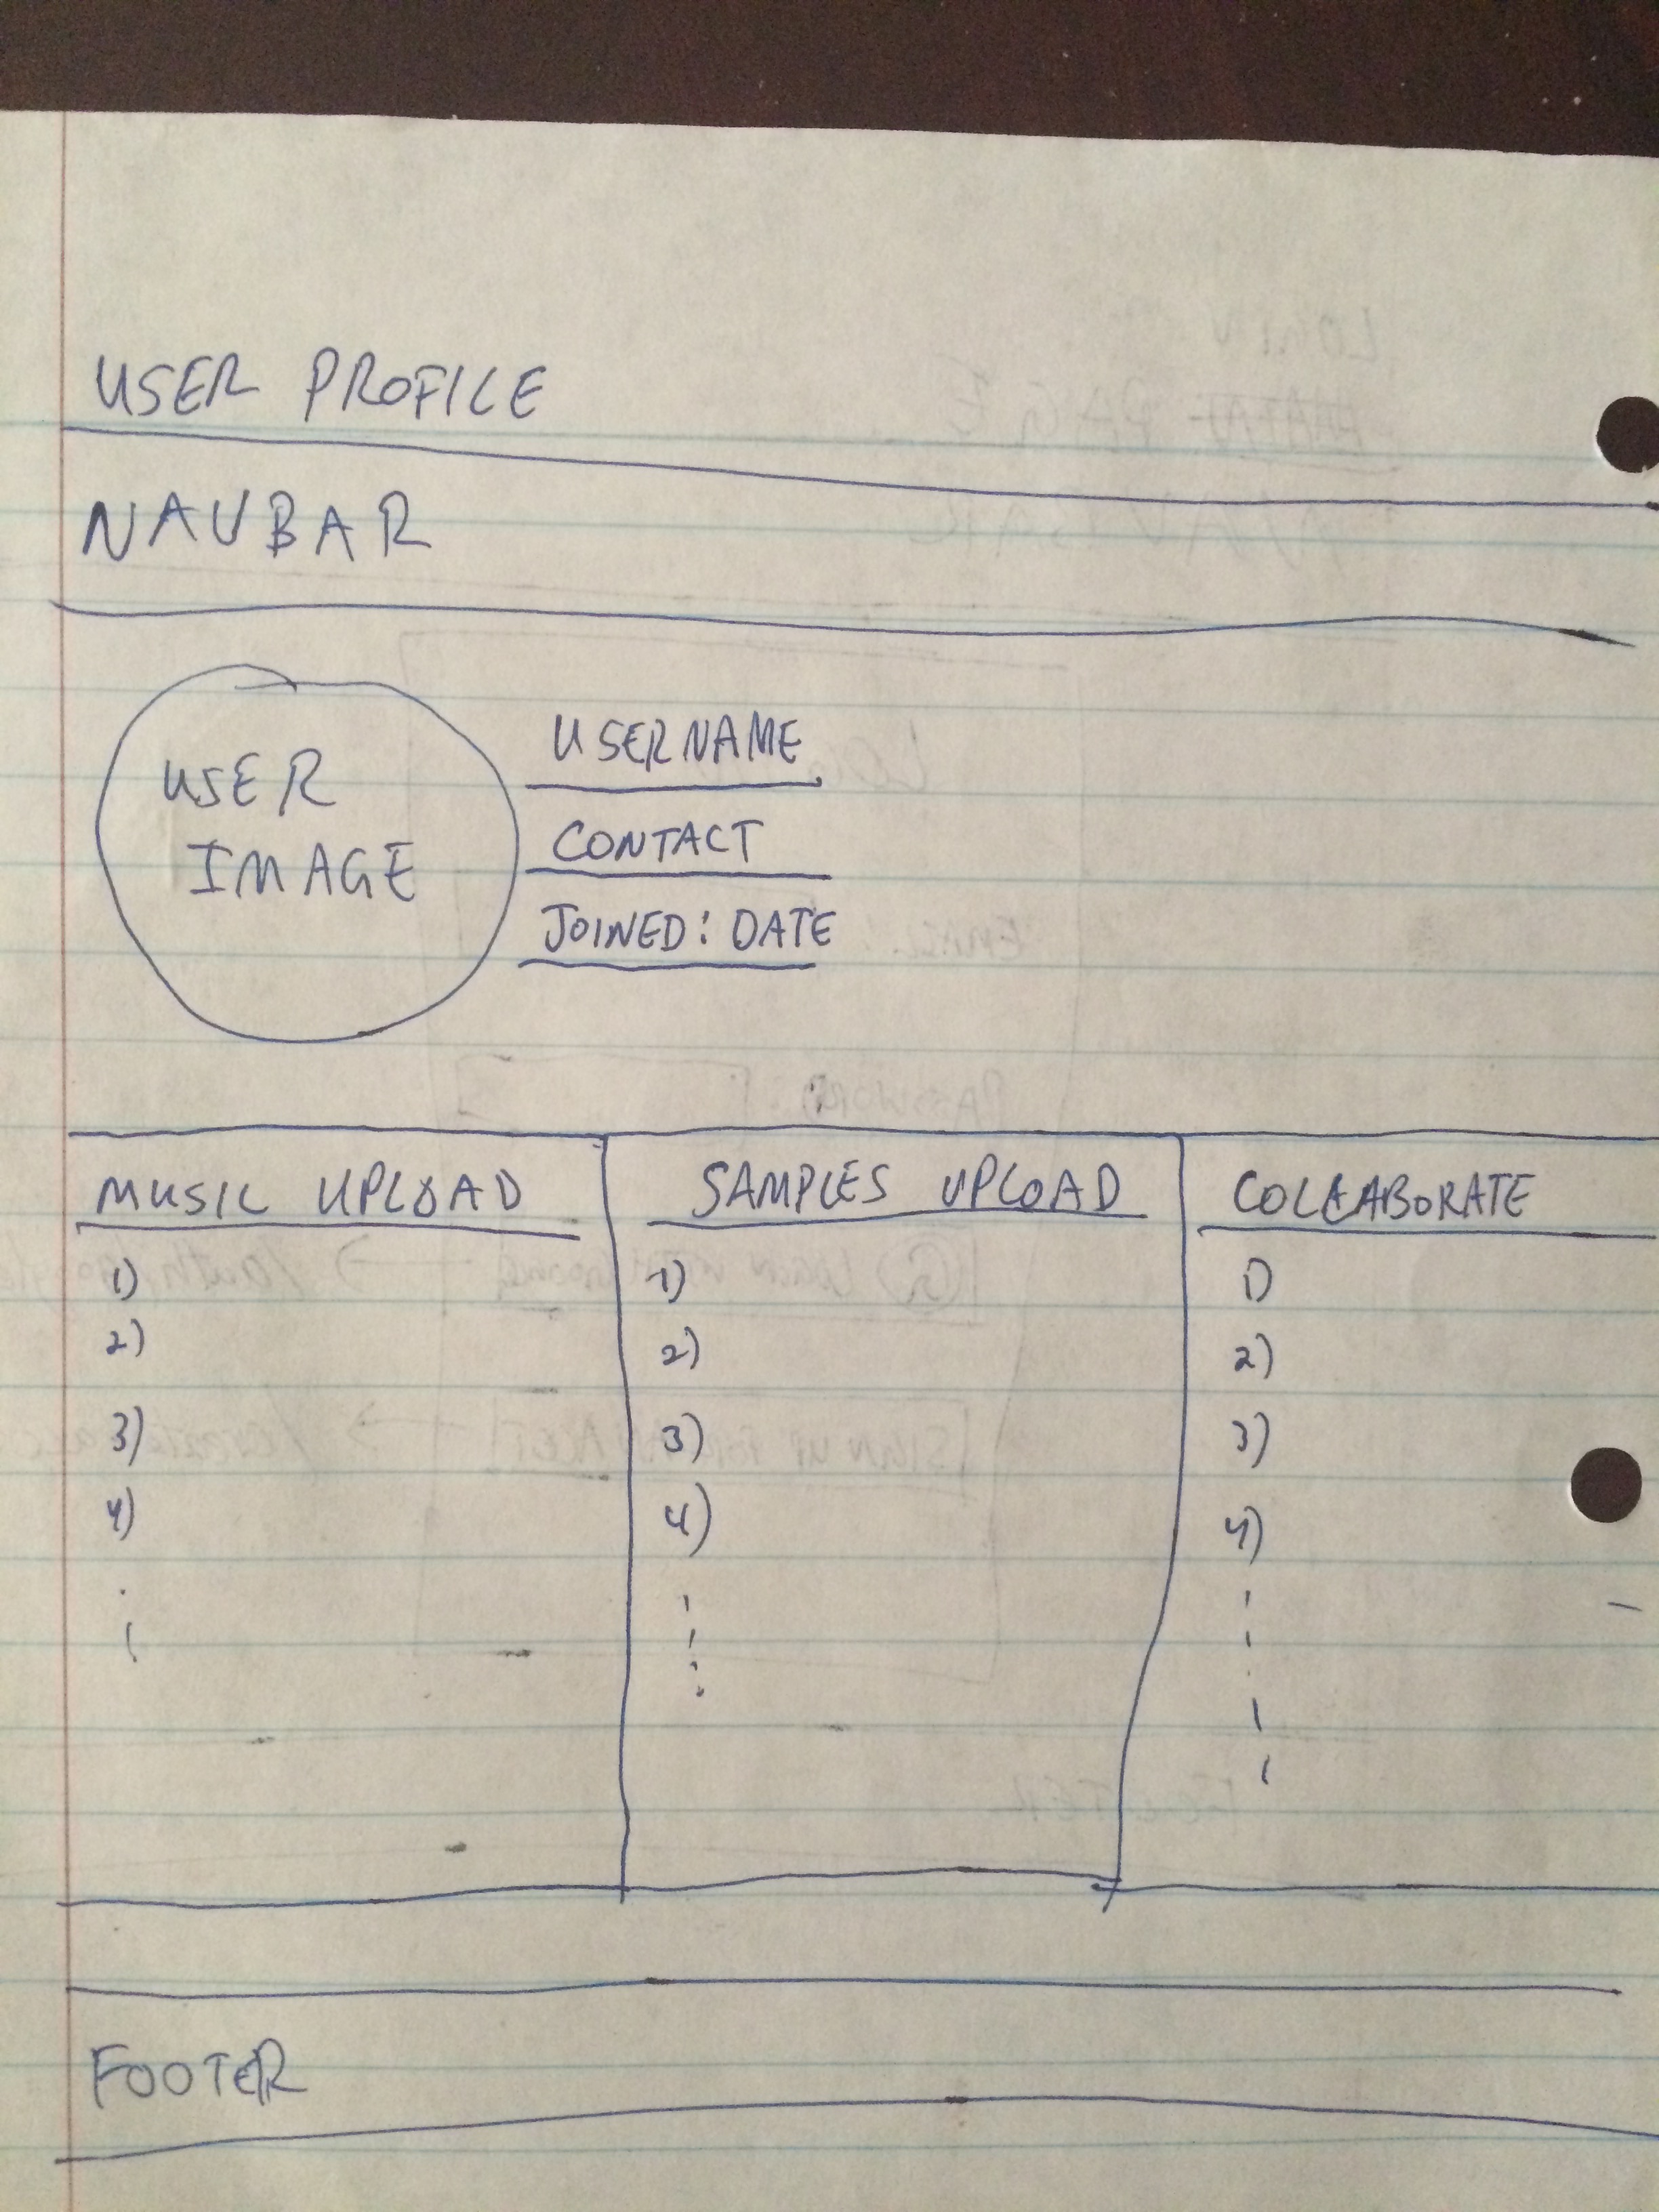 USER PROFILE
NAVBAR
USER
IMAGE
USERNAME
CONTACT
JOINED: DATE
MUSIC UPLOAD
1)
2)
3)
4)
SAMPLES UPLOAD
1)
2)
3)
4)
COLLABORATE
1)
2)
3)
4)
FOOTER